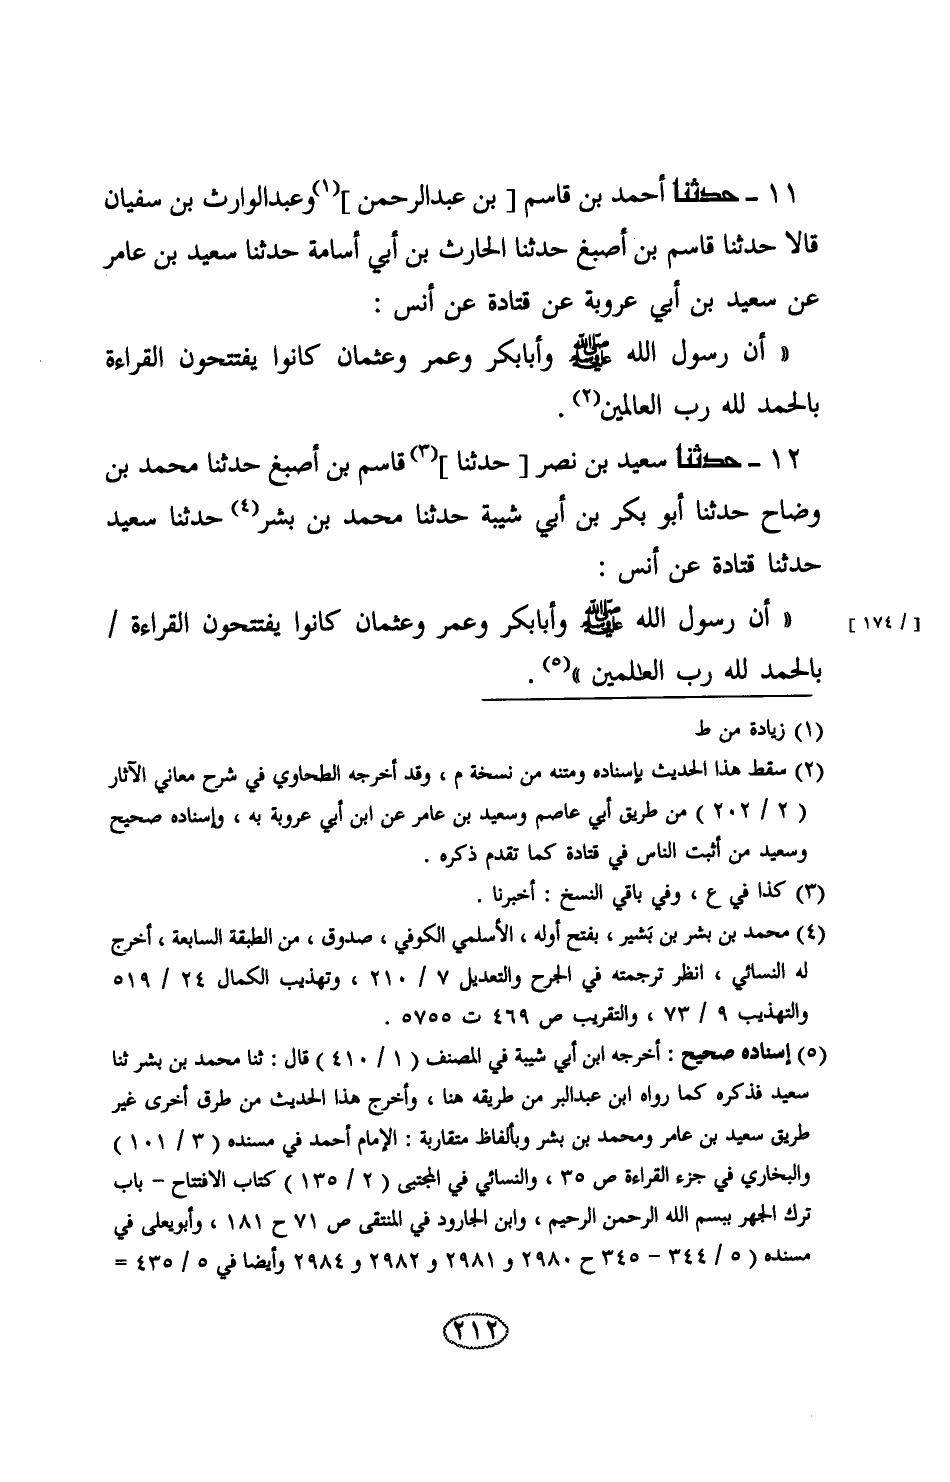 ١١ ـ حدثنا أحمد بن قاسم [ بن عبدالرحمن ](١)وعبدالوارث بن سفيان
قالا حدثنا قاسم بن أصبغ حدثنا الحارث بن أبي أسامة حدثنا سعيد بن عامر
عن سعيد بن أبي عروبة عن قتادة عن أنس :
« أن رسول الله ﷺ وأبابكر وعمر وعثمان كانوا يفتتحون القراءة
بالحمد لله رب العالمين(٢) .
١٢ ـ حدثنا سعيد بن نصر [ حدثنا ](٣) قاسم بن أصبغ حدثنا محمد بن
وضاح حدثنا أبو بكر بن أبي شيبة حدثنا محمد بن بشر(٤) حدثنا سعيد
حدثنا قتادة عن أنس :
« أن رسول الله ﷺ وأبابكر وعمر وعثمان كانوا يفتتحون القراءة /
[ / ١٧٤ ]
بالحمد لله رب العالمين »(٥) .
(١) زيادة من ط
(٢) سقط هذا الحديث بإسناده ومتنه من نسخة م ، وقد أخرجه الطحاوي في شرح معاني الآثار
( ٢ / ٢٠٢ ) من طريق أبي عاصم وسعيد بن عامر عن ابن أبي عروبة به ، وإسناده صحيح
وسعيد من أثبت الناس في قتادة كما تقدم ذكره .
(٣) كذا في ع ، وفي باقي النسخ : أخبرنا .
(٤) محمد بن بشر بن بَشير ، بفتح أوله ، الأسلمي الكوفي ، صدوق ، من الطبقة السابعة ، أخرج
له النسائي ، انظر ترجمته في الجرح والتعديل ٧ / ٢١٠ ، وتهذيب الكمال ٢٤ / ٥١٩
والتهذيب ٩ / ٧٣ ، والتقريب ص ٤٦٩ ت ٥٧٥٥ .
(٥) إسناده صحيح : أخرجه ابن أبي شيبة في المصنف ( ١ / ٤١٠ ) قال : ثنا محمد بن بشر ثنا
سعيد فذكره كما رواه ابن عبدالبر من طريقه هنا ، وأخرج هذا الحديث من طرق أخرى غير
طريق سعيد بن عامر ومحمد بن بشر وبألفاظ متقاربة : الإمام أحمد في مسنده ( ٣ / ١٠١ )
والبخاري في جزء القراءة ص ٣٥ ، والنسائي في المجتبى ( ٢ / ١٣٥ ) كتاب الافتتاح – باب
ترك الجهر ببسم الله الرحمن الرحيم ، وابن الجارود في المنتقى ص ٧١ ح ١٨١ ، وأبويعلى في
مسنده ( ٥ / ٣٤٤ – ٣٤٥ ح ٢٩٨٠ و ٢٩٨١ و ٢٩٨٢ و ٢٩٨٤ وأيضا في ٥ / ٤٣٥ =
٢١٢